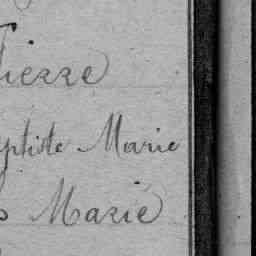 Pierre
aptiste Marie
s Marie